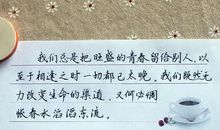 我们总是把旺盛的青春留给别人，以
至于相逢之时一切都已太晚。我们既然无
力改变生命的渠道，又何必惆
怅春水滔滔东流。